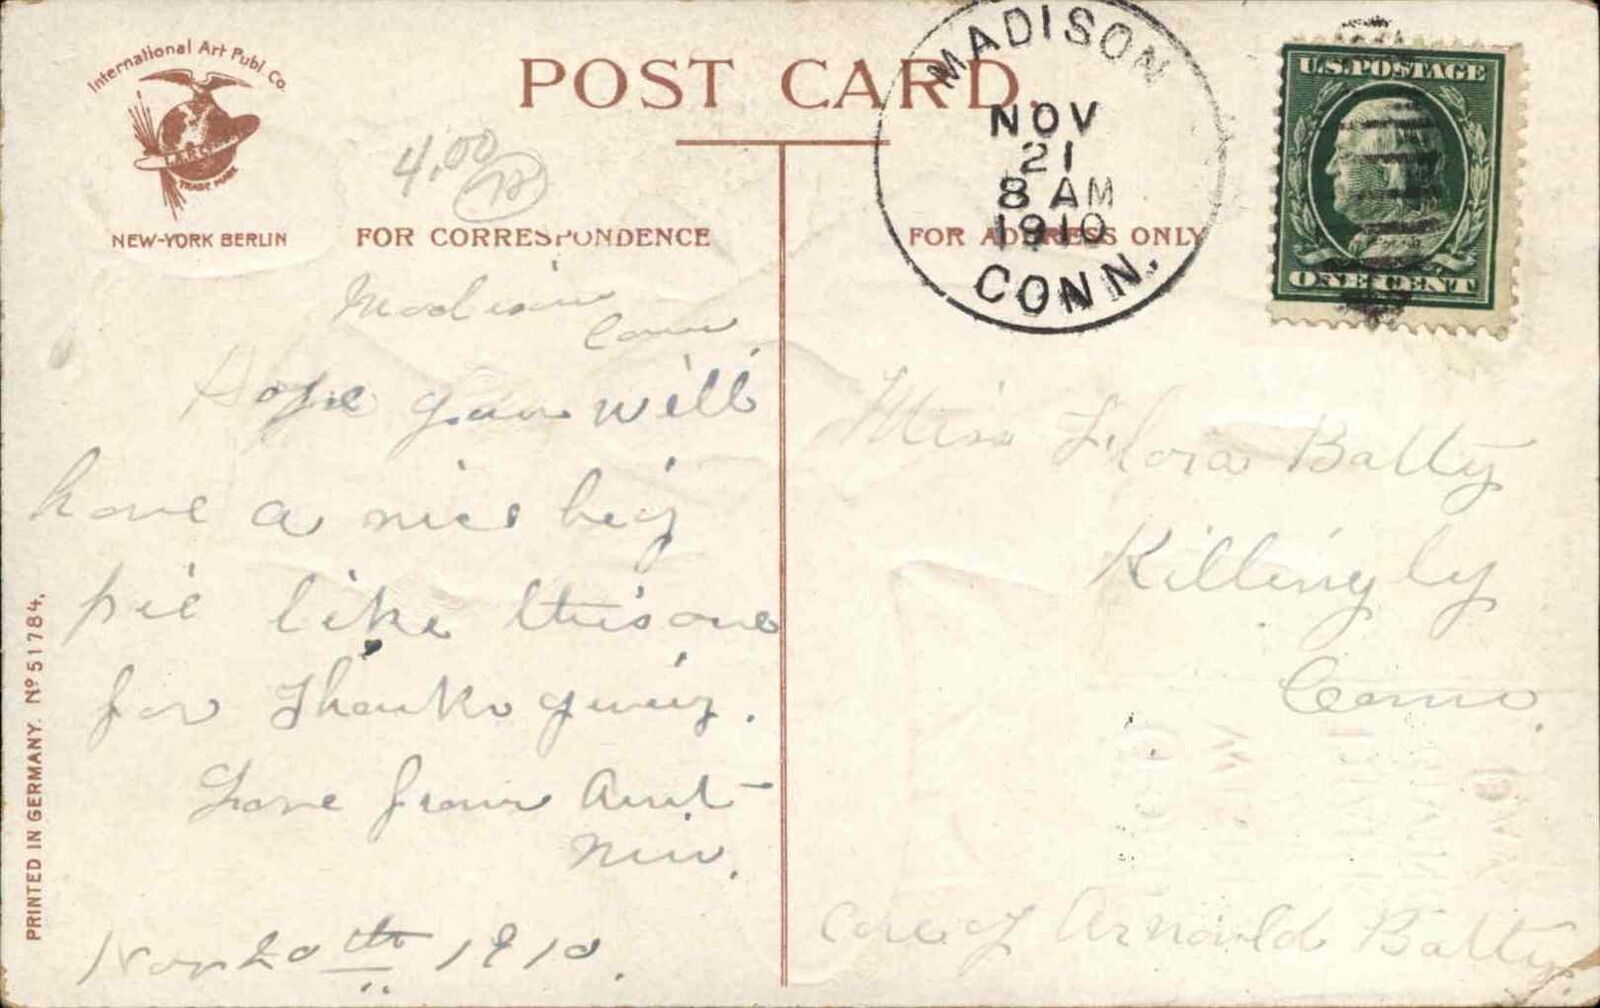 International Art Publ. Co.
TRADE MARK
NEW-YORK BERLIN
POST CARD.
4.00
FOR CORRESPONDENCE
MADISON
NOV
21
8 AM
1910
CONN.
U.S. POSTAGE
ONE CENT
FOR ADDRESS ONLY
Madison
Conn
Hope you will
have a nice big
pie like this one
for Thanksgiving.
Love from Aunt
Nov 20th 1910.
Miss Flora Batty
Killingly
Conn.
care of Arnold Batty.
PRINTED IN GERMANY. Nº 51784.